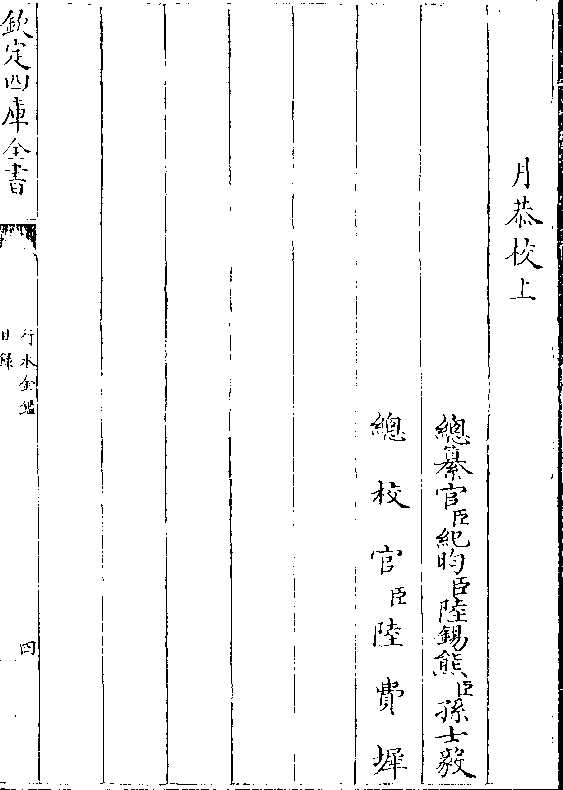 月恭校上
總纂官臣紀昀臣陸錫熊臣孫士毅
總校官臣陸費墀
欽定四庫全書
行水金鑑
目錄
四